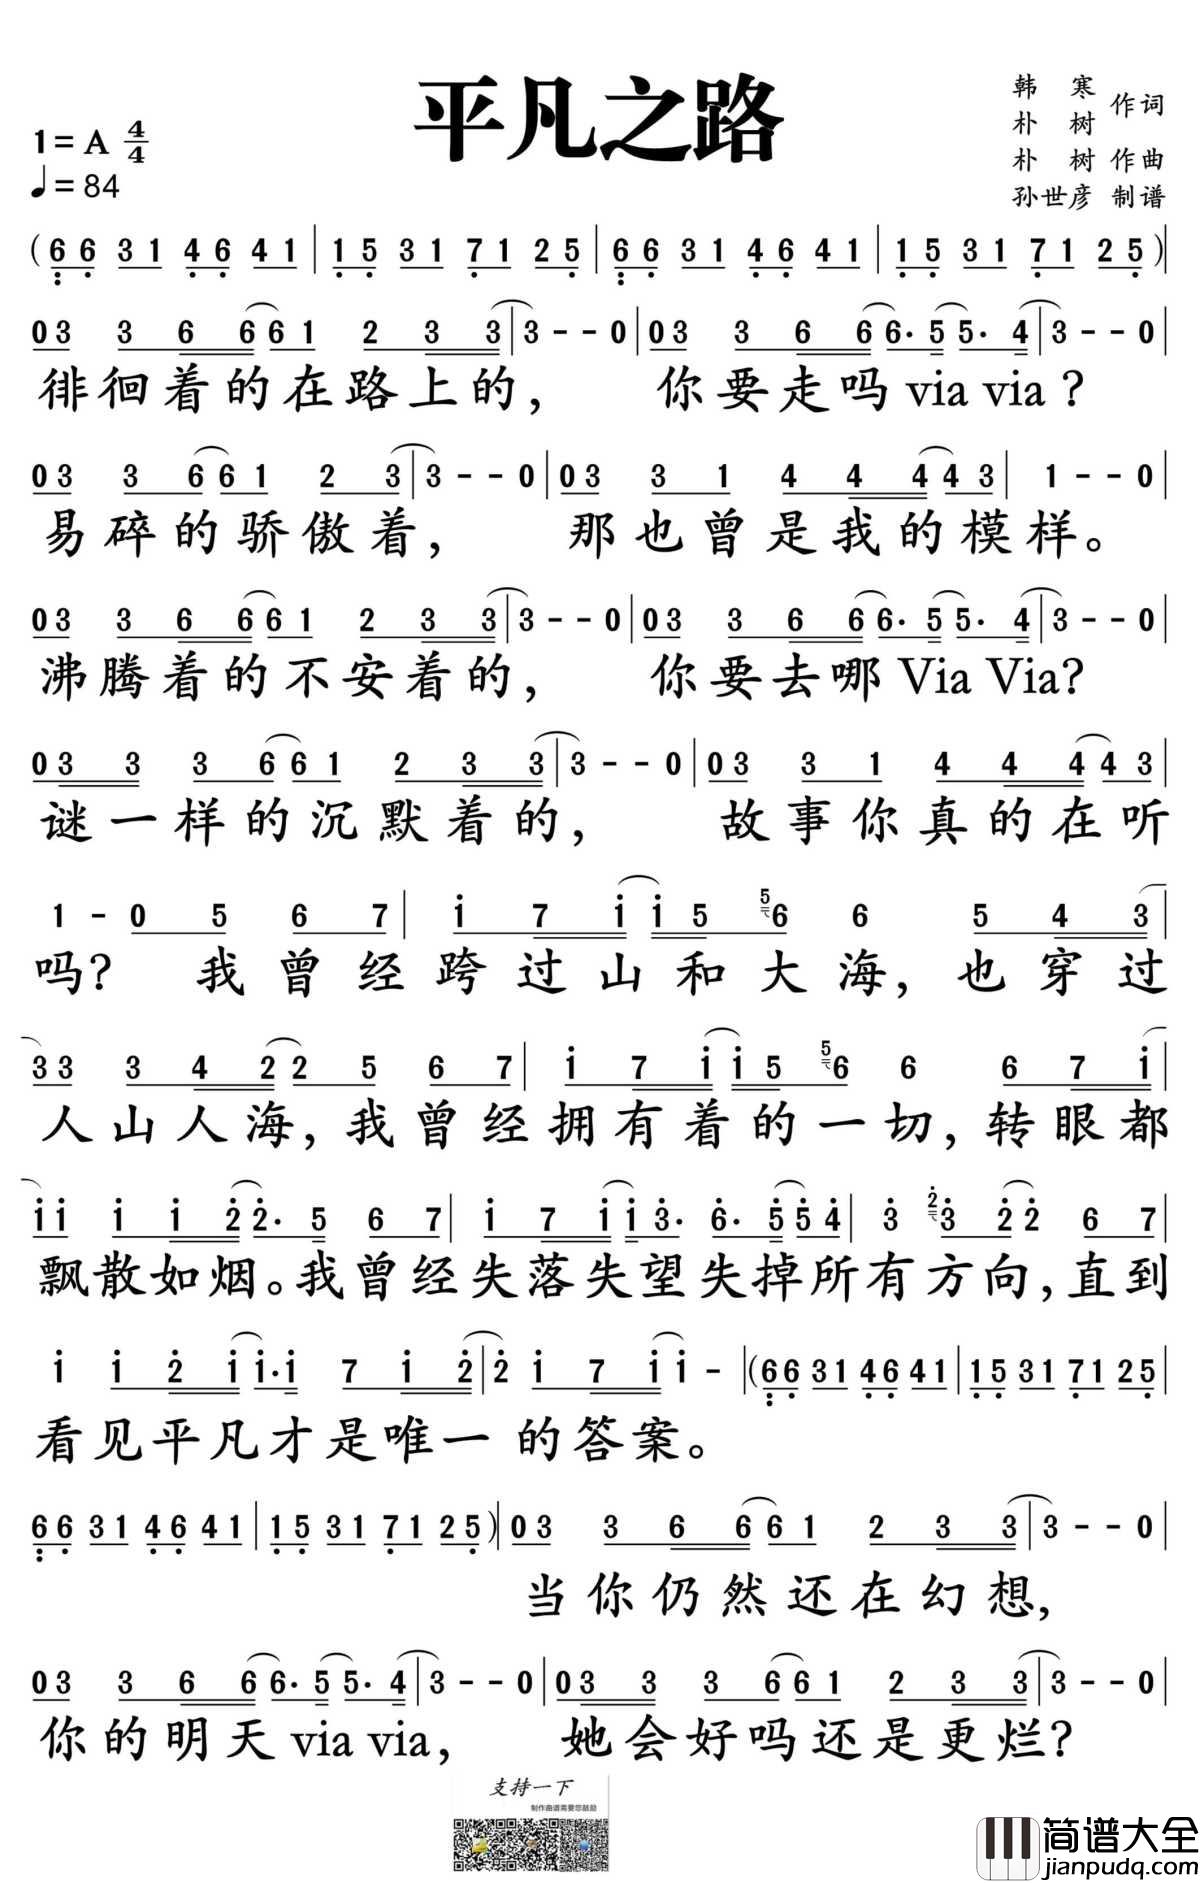 平凡之路
韩 寒
朴 树 作词
朴 树 作曲
孙世彦 制谱
1=A 4/4
♩=84
( 6 6 3 1 4 6 4 1 | 1 5 3 1 7 1 2 5 | 6 6 3 1 4 6 4 1 | 1 5 3 1 7 1 2 5 ) |
0 3 3 6 6 6 1 2 3 3 | 3 - - 0 | 0 3 3 6 6 6· 5 5· 4 | 3 - - 0 |
徘徊着的在路上的， 你要走吗 via via？
0 3 3 6 6 1 2 3 | 3 - - 0 | 0 3 3 1 4 4 4 4 3 | 1 - - 0 |
易碎的骄傲着， 那也曾是我的模样。
0 3 3 6 6 6 1 2 3 3 | 3 - - 0 | 0 3 3 6 6 6· 5 5· 4 | 3 - - 0 |
沸腾着的不安着的， 你要去哪 Via Via?
0 3 3 3 6 6 1 2 3 3 | 3 - - 0 | 0 3 3 1 4 4 4 4 3 |
谜一样的沉默着的， 故事你真的在听
1 - 0 5 6 7 | i 7 i i 5 5 6 6 5 4 3 |
吗？ 我曾经跨过山和大海，也穿过
3 3 3 4 2 2 5 6 7 | i 7 i i 5 5 6 6 6 7 i |
人山人海，我曾经拥有着的一切，转眼都
i i i i 2 2· 5 6 7 | i 7 i i 3· 6· 5 5 4 | 3 2 3 2 2 6 7 |
飘散如烟。我曾经失落失望失掉所有方向，直到
i i 2 i i· i 7 i 2 | 2 i 7 i i - | ( 6 6 3 1 4 6 4 1 | 1 5 3 1 7 1 2 5 |
看见平凡才是唯一的答案。
6 6 3 1 4 6 4 1 | 1 5 3 1 7 1 2 5 ) | 0 3 3 6 6 6 1 2 3 3 | 3 - - 0 |
当你仍然还在幻想，
0 3 3 6 6 6· 5 5· 4 | 3 - - 0 | 0 3 3 3 6 6 1 2 3 3 | 3 - - 0 |
你的明天 via via， 她会好吗还是更烂？
支持一下
制作曲谱需要您鼓励
简谱大全
jianpudq.com